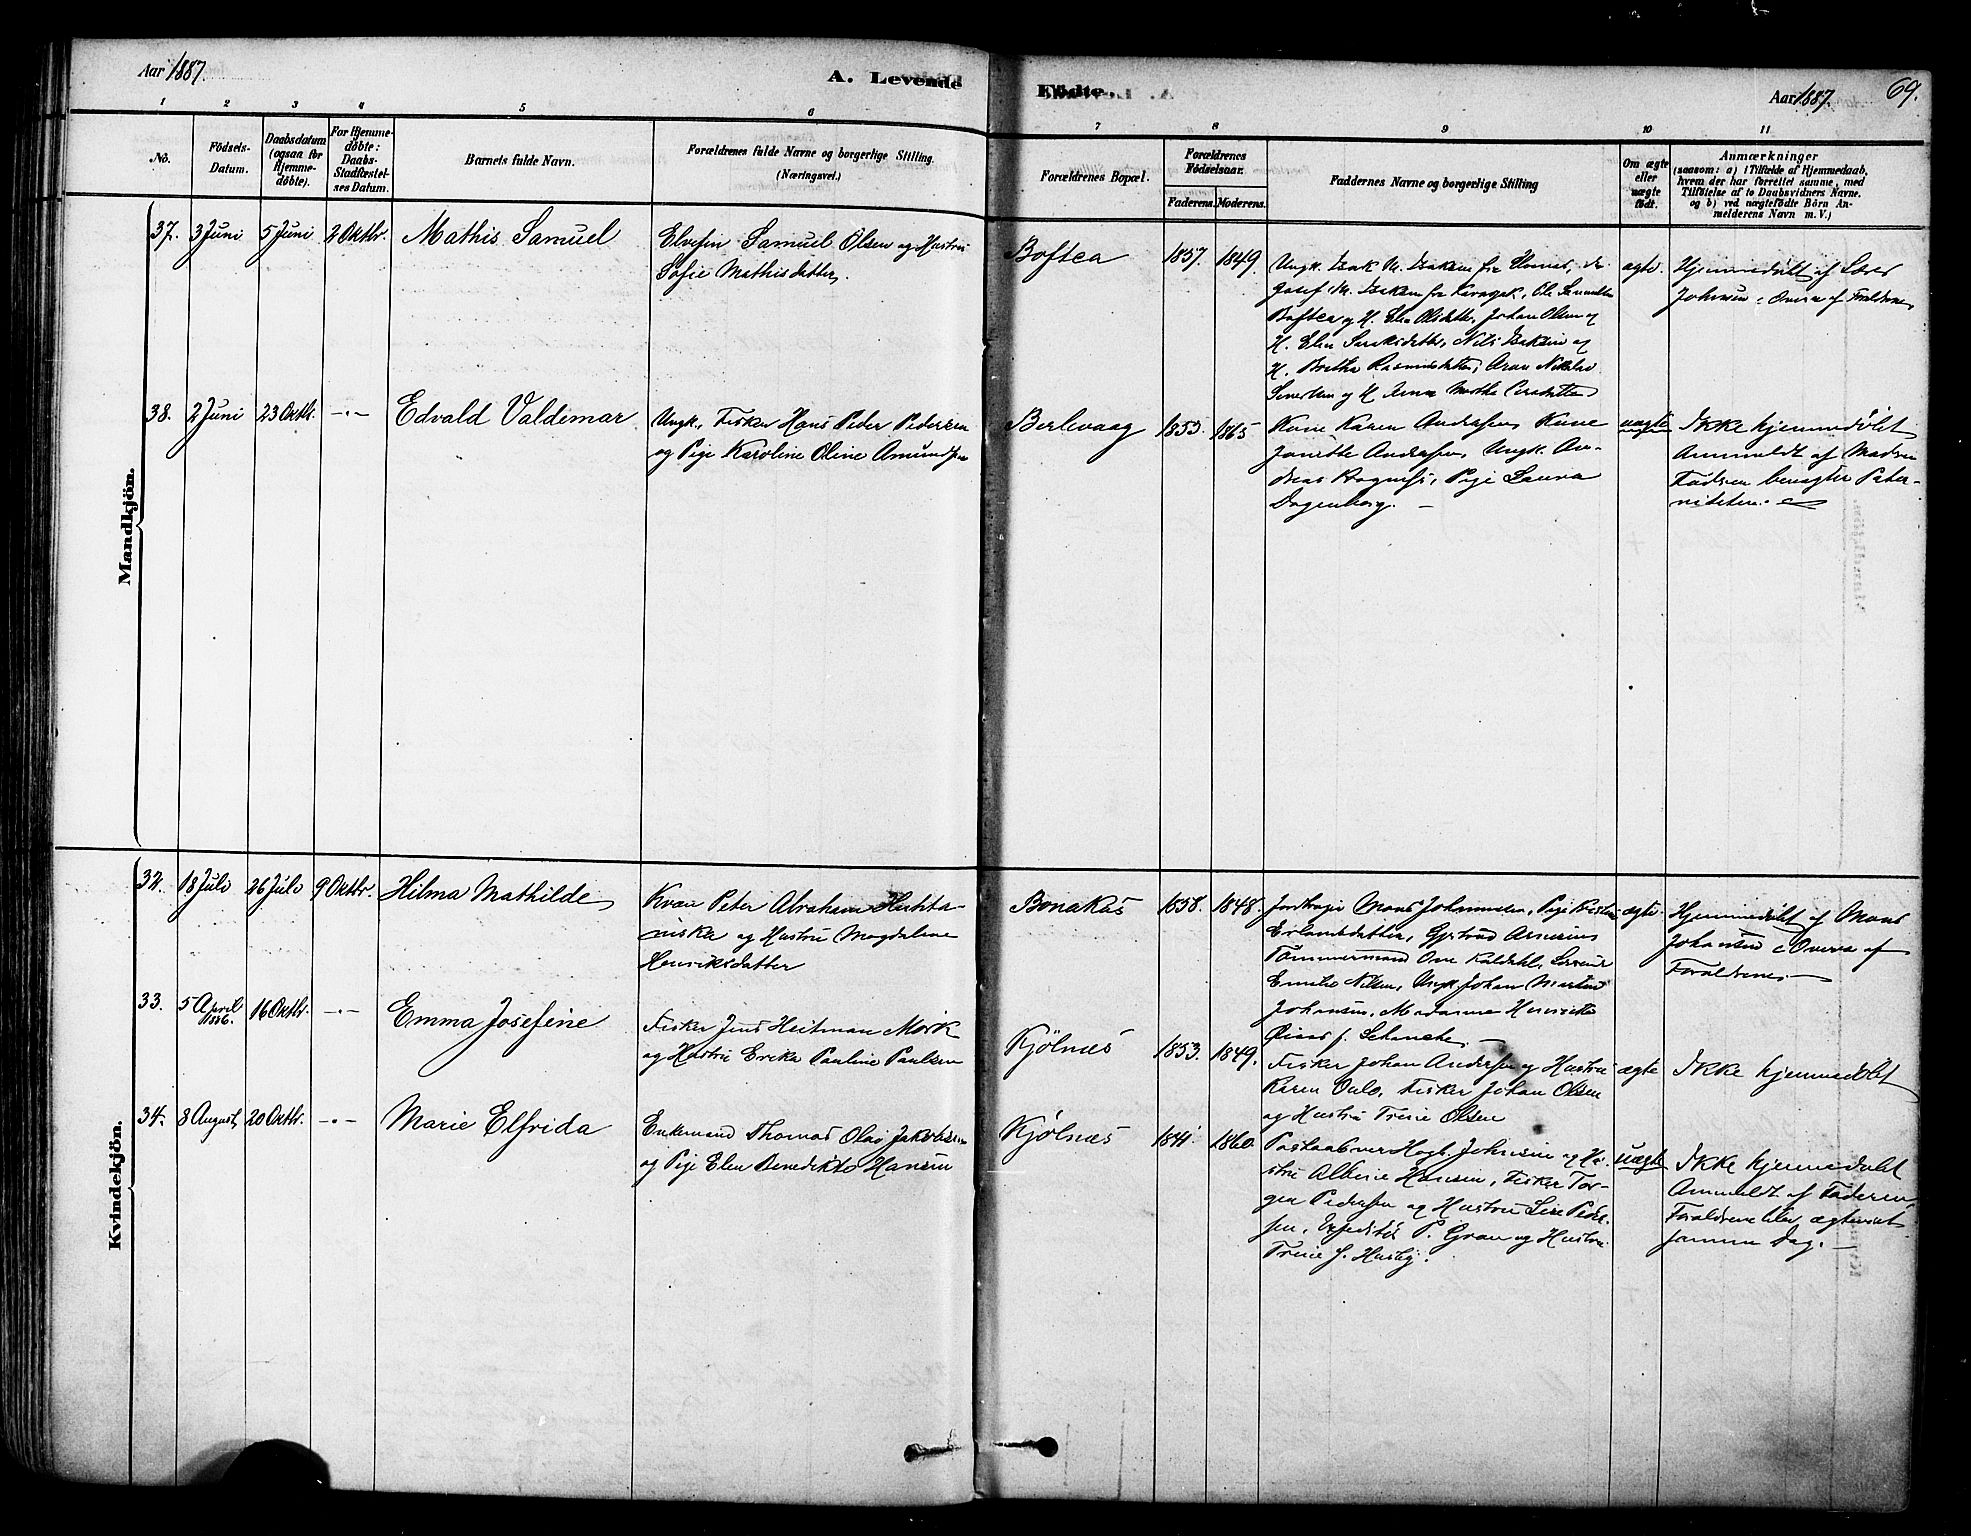 Aar 1887.
A. Levende
Födte.
Aar 1887.
69.
1 2 3 4 5 6 7 8 9 10 11
No.
Födsels-
Datum.
Daabsdatum
(ogsaa for
Hjemme-
döbte).
For Hjemme-
döbte:
Daabs-
Stadfæstel-
ses Datum.
Barnets fulde Navn.
Forældrenes fulde Navne og borgerlige Stilling.
(Næringsvei.)
Forældrenes Bopæl.
Forældrenes
Födselsaar.
Faderens. Moderens.
Faddernes Navne og borgerlige Stilling
Om ægte
eller
uægte
födt.
Anmærkninger
(saasom: a) i Tilfælde af Hjemmedaab,
hvem der har forrettet samme, med
Tilföielse af to Daabsvidners Navne,
og b) ved uægtefödte Börn An-
melderens Navn m. V.)
Mandkjön.
37. 3 Juni 5 Juni 2 Oktbr. Mathis Samuel
Elvefin Samuel Olsen og Hustru
Sofie Mathisdatter.
Boftca 1857. 1849.
Ungk. Isak M. Isaksen fra
Josef M. Isaksen fra Karasjok, Ole Samuelsen
Boftca og H. Elen Olsdatter, Johan Olsen og
H. Elen Nils Isaksen og
H. Berthe Rasmusdatter, Aron Nikolai
og H Anna
ægte.
Hjemmedøbt af Lærer
Johnsen i Overv. af Forældrene
38. 2 Juni 23 Oktb. -"- Edvald Valdemar
Ungk., Fisker Hans Peder Pedersen
og Pige Karoline Oline Amundsen
Berlevaag 1853. 1865
Kone Karen Andersen, Kone
Andersen, Ungk. An-
dreas Pige Laura
Dogenborg. -
uægte
Ikke hjemmedøbt
Anmeldt af Modren
Faderen benægter Pater-
niteten.
Kvindekjön.
32. 18 Juli 26 Juli 9 Oktbr. Hilma Mathilde
Kvæn Peter Abraham Huhta-
niska og Hustru Magdalene
Henriksdatter
Bonakas 1858. 1848.
Mons Johannesen, Pige
Erlandsdatter, Gjertrud
Tømmermand
Emilie Nilsen, Ungk. Johan Martin
Johansen, Madamme Henrikke
f. Schanche. -
ægte
Hjemmedøbt af Mons
Johansen i Overv. af
Forældrene. -
33. 5 April 1886. 16 Oktbr. -"- Emma Josefine
Fisker Jens Heitman Mørk
og Hustru Erika Pauline Paulsen
Kjølnæs 1853. 1849.
Fisker Johan Andersen og Hustru
Karen Fisker Johan Olsen
og Hustru Trine Olsen
ægte
Ikke hjemmedøbt
34. 8 August 20 Oktbr. -"- Marie Elfrida
Enkemand Thomas Olai Jakobsen
og Pige Elen Benedikte Hansen
Kjølnæs 1841. 1860.
Postaabner Hagb. Johnsen og Hu-
stru Albine Hansen, Fisker Tor-
ger Pedersen og Hustru Lise Peder-
sen, Expeditør P. Gran og Hustru
Trine f. Husby.
uægte
Ikke hjemmedøbt
Anmeldt af Faderen,
Forældrene blev ægteviet
samme Dag. -